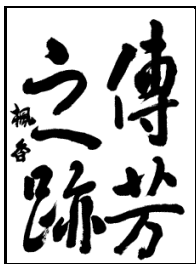 傳芳
之跡
楓香